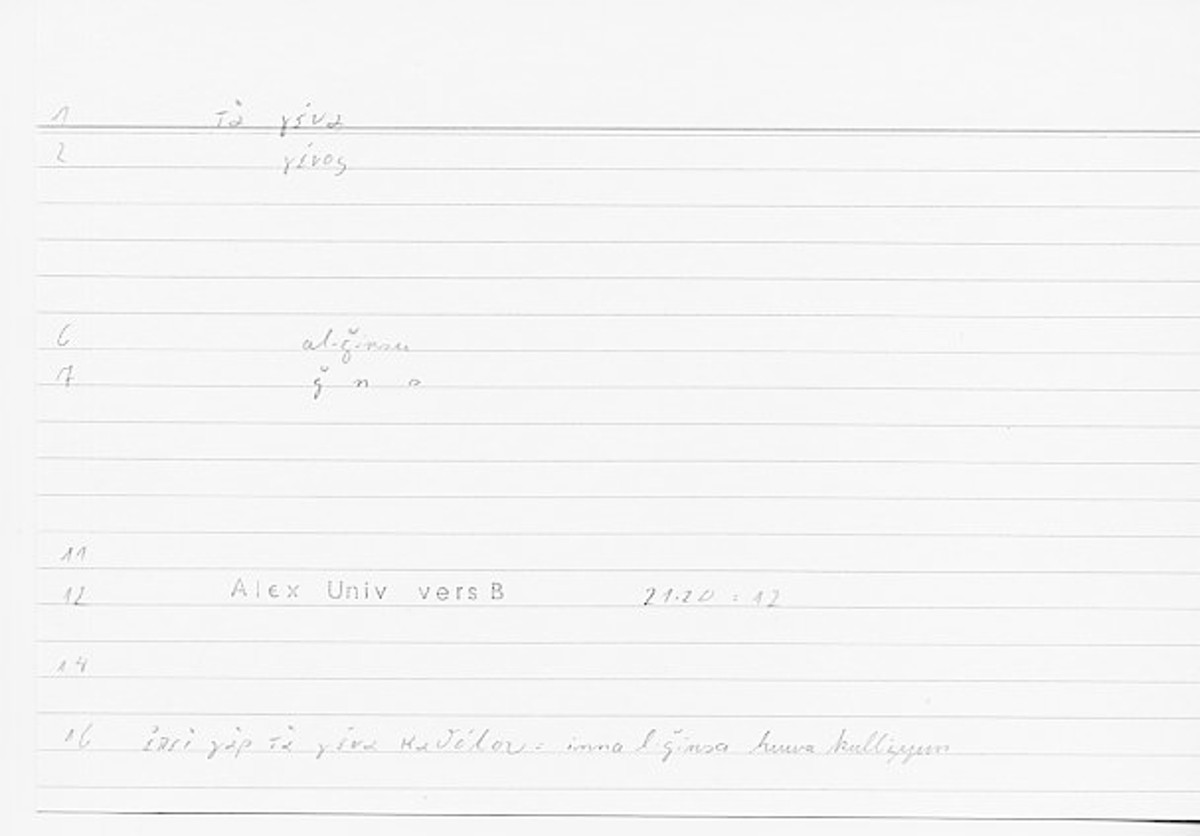 1 τὰ γένα
2 γένος
6 al-ǧinsu
7 ǧ n s
11
12 Alex Univ vers B 21.20 : 12
14
16 ἐπεὶ γὰρ τὰ γένα καθόλου : inna l-ǧinsa huwa kullīyun